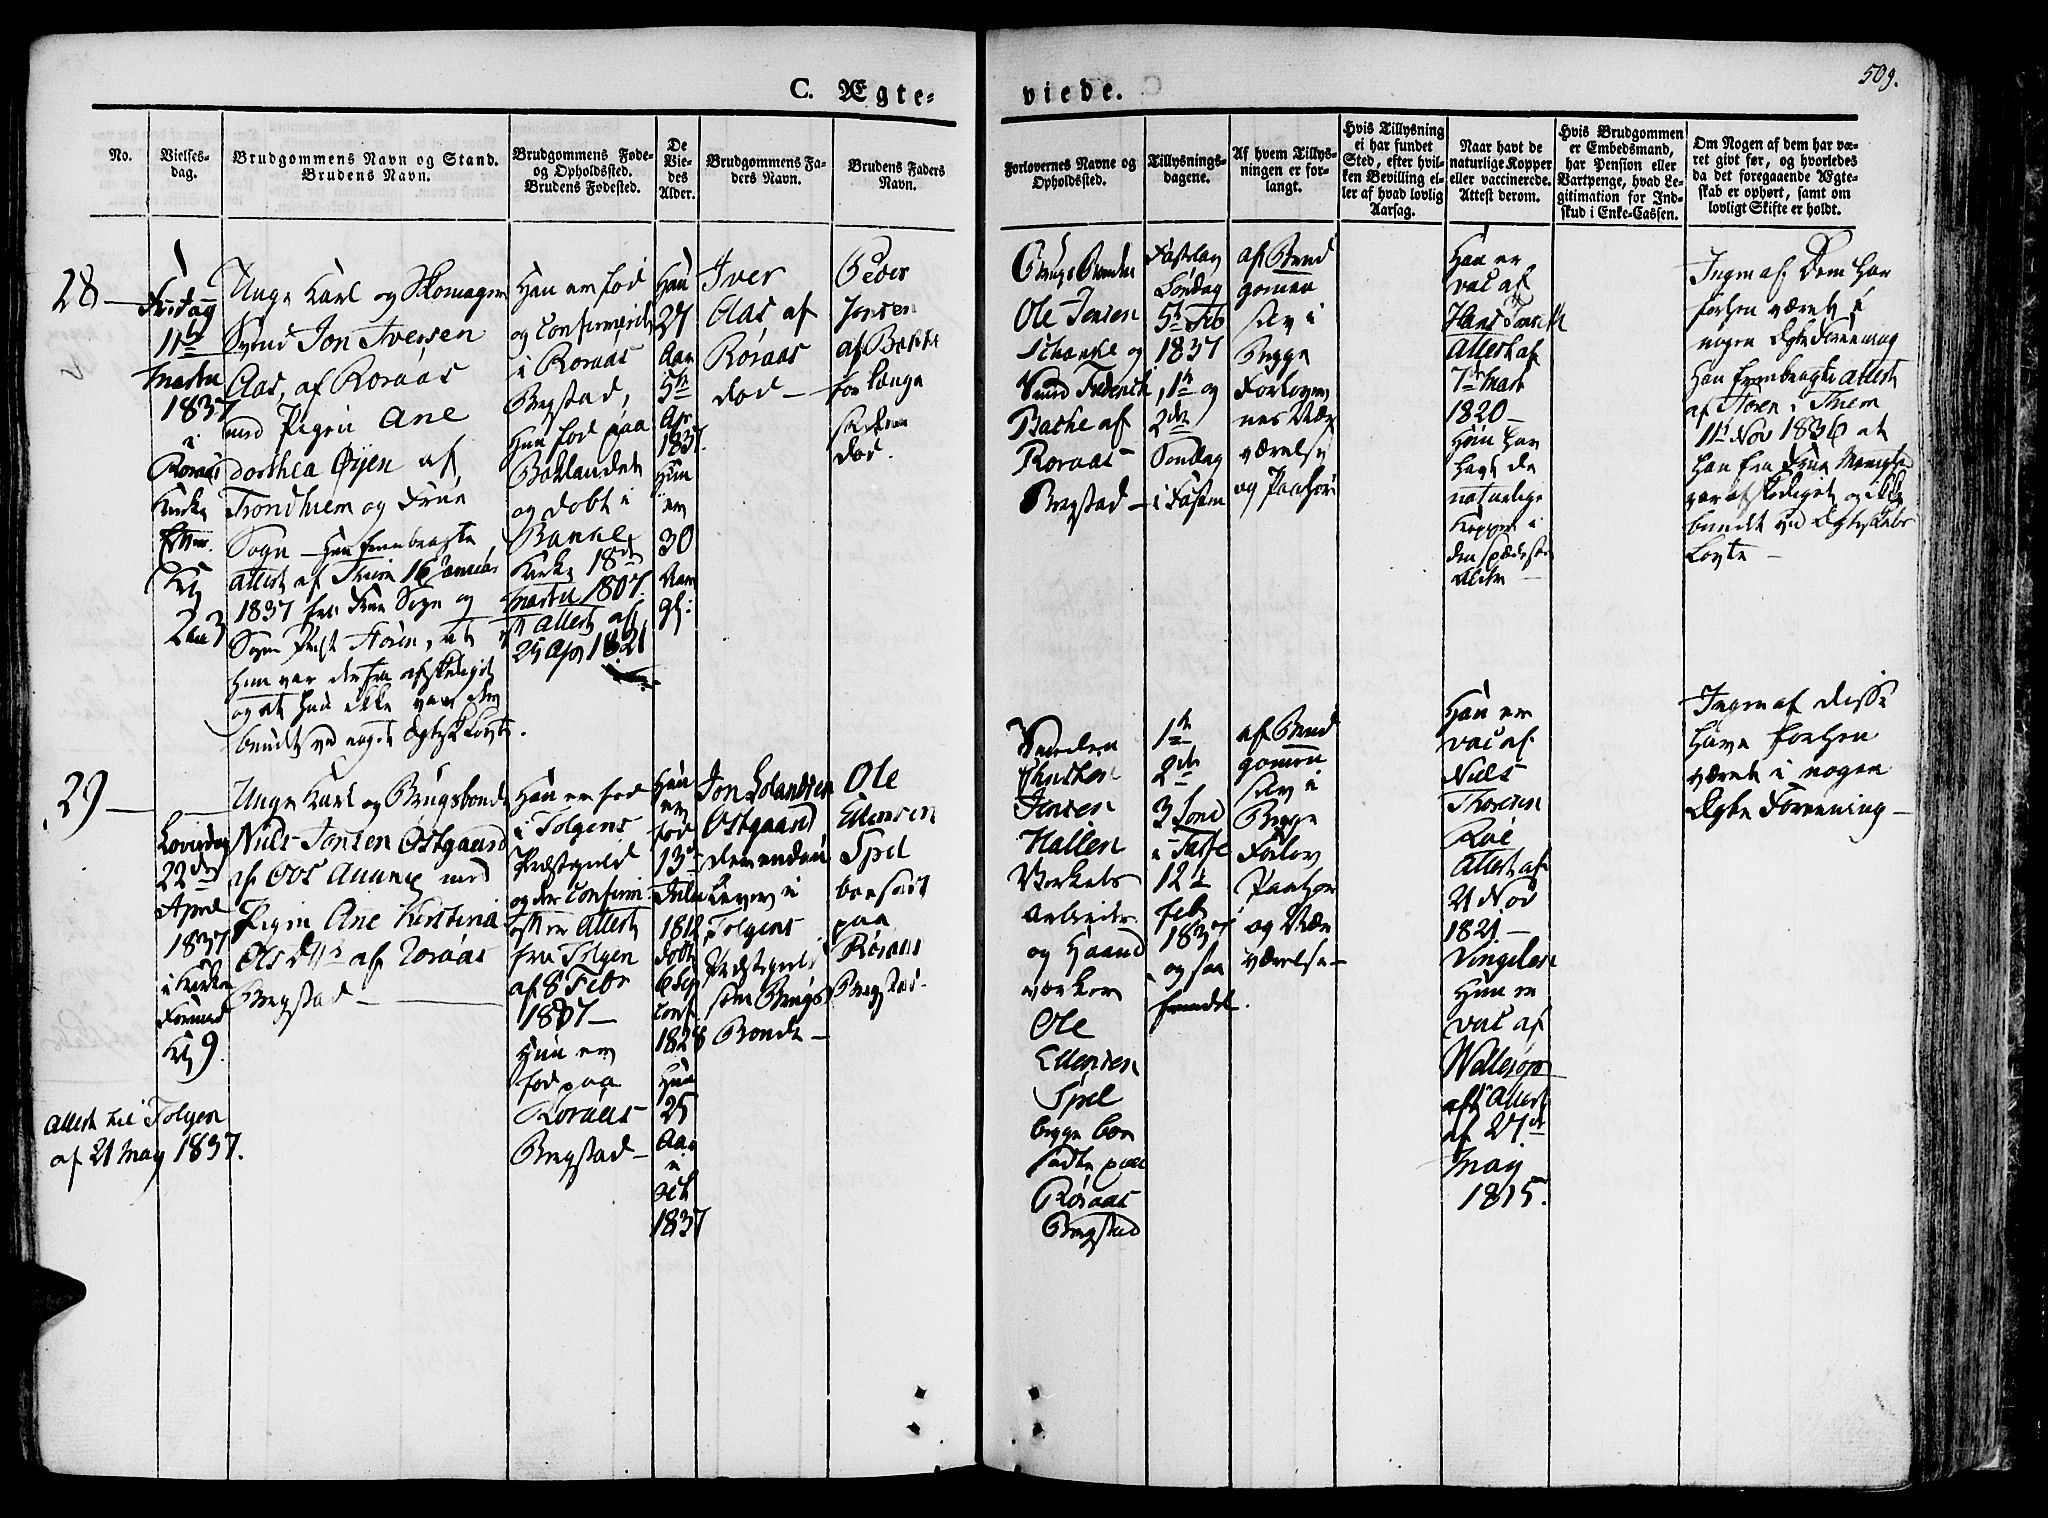 509.
C. Ægte-
viede.
No.
Vielses-
dag.
Brudgommens Navn og Stand.
Brudens Navn.
Brudgommens Føde-
og Opholdssted.
Brudens Fødested.
De
Vie-
des
Alder.
Brudgommens Fa-
ders Navn.
Brudens Faders
Navn.
Forlovernes Navne og
Opholdssted.
Tillysnings-
dagene.
Af hvem Tillys-
ningen er for-
langt.
Hvis Tillysning
ei har fundet
Sted, efter hvil-
ken Bevilling el-
ler af hvad lovlig
Aarsag.
Naar havt de
naturlige Kopper
eller vaccinerede.
Attest derom.
Hvis Brudgommen
er Embedsmand,
har Pension eller
Vartpenge, hvad Le-
gitimation for Ind-
skud i Enke-Cassen.
Om Nogen af dem har væ-
ret givt før, og hvorledes
da det foregaaende Ægte-
skab er ophørt, samt om
lovligt Skifte er holdt.
28
Fredag
11te
Martii
1837
i
Roraas
Kirke
Efter.
Kl
2 a 3
Unge Karl og Skomager
Svend Jon Iversen
Aas, af Roraas
med Pigen Ane
dorthea Øyen af
Trondhiem og Frue
Sogn
attest af Thiem 16 Januar
1837 fra Frue Sogn og
Sogne Præst
Hun var derfra afskediget
og at hun ikke var
bundet ved noget Egtesk Løvte.
Han er fød
og Confirmeret
i Roraas
Bergstad,
Hun fød paa
Baklandet
og døbt i
Bakke
Kirke 18de
Martii 1807.
Attest af
25 Apr 1821
Han
27
Aar
5te
Apr
1837.
Hun
er
30
Aar
gl:
Iver
Olas af
Røraas
død
Peder
Jensen
af Bakke
for længe
siden
død.
Ole Jensen
Schanke og
Svend Frederik
Bache af
Roraas
Bergstad
Fastelav
Søndag
5te Feb
1837
1te og
2den
Søndag
i Fasten
af Brud
gomen
selv i
Begge
Forlover
nes Nær
værelse
og Paahør
Han er
vac af
Attest af
7de Mart
1820
Hun har
havt de
naturlige
Kopper i
den spædeste
Alder
Ingen af Dem har
forhen været i
nogen Egte Foreening
Han frembragte Attest
11te Nov 1836 at
han fra Frue Menighed
var afskediget og ikke
bundet ved Egteskabs
Løvte
29
Løverdag
22de
April
1837
i Kirken
Formid
Kl 9.
Unge Karl og Brugsbonde
Niels Jonsen Østgaard
af Oos Annex med
Pigen Ane Kirstina
Olsdttr af Roraas
Bergstad
Han er fød
i Tolgens
Præstegield
og der Confirm
efter Attest
fra Tolgen
af 8 Febr
1837
Hun er
fød paa
Roraas
Bergstad
Han
er
fød
13de
Julii
1812
døbt
6 Sep
Conf
1828
Hun
25
Aar
i
Oct
1837
Jon
Østgaard
der endnu
Lever i
Tolgens
Præstegield
som Brugs
Bonde
Ole
Ellensen
Spel
boesat
paa
Røraas
Bergstad
Svenden
Christen
Jensen
Hallen
Verkets
Arbeider
og Haand
verker
Ole
Ellensen
Spel
begge boe
satte paa
Røraas
Bergstad
1te
2de
3 Sønd
i Faste
12te
feb
1837
og saa
fremdt.
af Brud
gomen
selv i
Begge
Forlov
Paahør
og Nær
værelse
Han er
vac af
Niels
Thoresen
Roe
Attest af
21 Nov
1821
Vingelen
Hun er
vac af
aft Attest
af 27de
May
1815.
Ingen af disse
Have forhen
været i nogen
Egte Forening
Attest til Tolgen
af 21 May 1837.